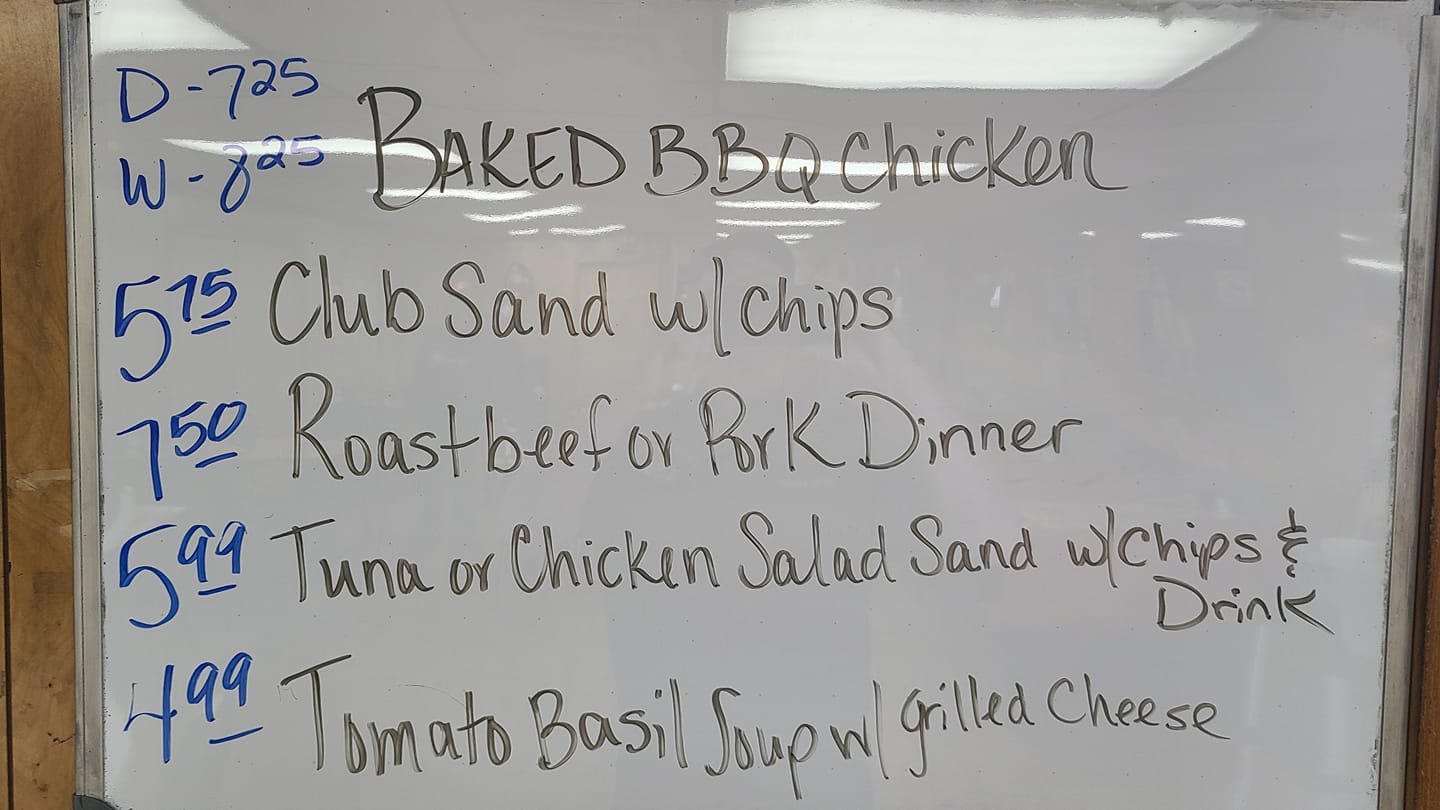 D - 7 25
W - 8 25 BAKED BBQ Chicken
5 75 Club Sand w/ chips
7 50 Roastbeef or Pork Dinner
5 99 Tuna or Chicken Salad Sand w/ Chips &
Drink
4 99 Tomato Basil Soup w/ grilled Cheese